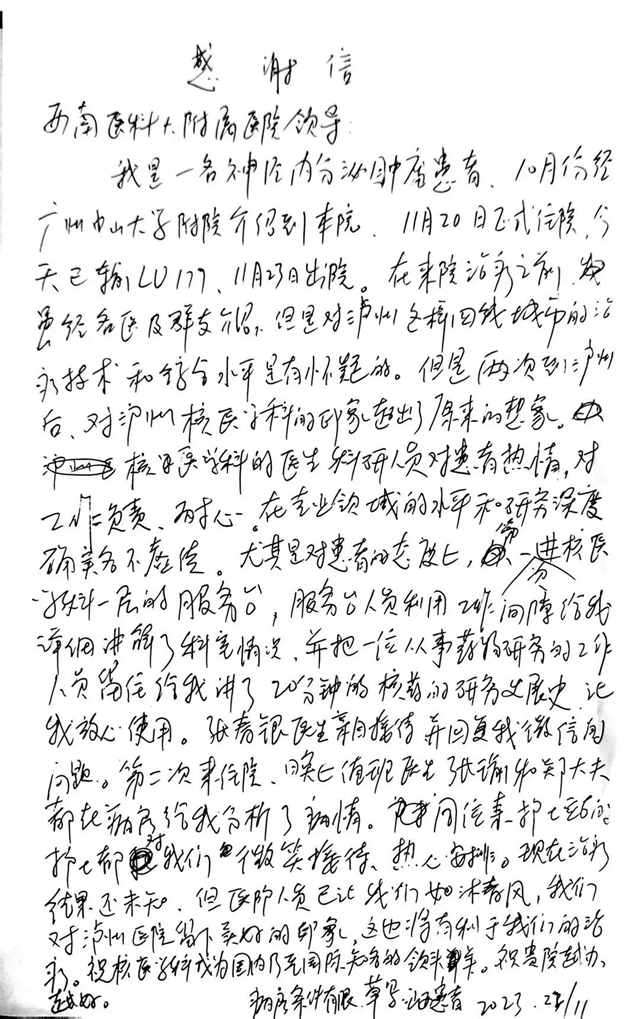 感谢信
西南医科大附属医院领导:
我是一名神经内分泌肿瘤患者、10月份经
广州中山大学附院介绍到本院、11月20日正式住院,今
天已输LU177、11月23日出院。在来院治疗之前,
虽经名医及群友介绍,但是对泸州这样四线城市的治
疗技术和综合水平是有怀疑的。但是两次到泸州
后、对泸州核医学科的印象超出了原来的想象。
核医学科的医生科研人员对患者热情,对
工作负责、耐心。在专业领域的水平和研究深度
确实名不虚传。尤其是对患者的态度上,第一进核医
学科一层的服务台,服务台人员利用工作间隙给我
详细讲解了科室情况、并把一位从事药物研究的工作
人员留住给我讲了20分钟的核药的研究发展史、让
我放心使用。张春银医生亲自接待并回复我微信的
问题。第二次来住院、晚上值班医生张瑜和郑大夫
都在病房给我分析了病情。间住来护士站的
护士都对我们微笑接待、热心安排。现在治疗
结果还未知、但医护人员已让我们如沐春风,我们
对泸州医院留下美好的印象,这也将有利于我们的治
疗。祝核医学科成为国内乃至国际知名的领头羊。祝贵院越办
越好。
病房条件有限、草字 患者 2023.23/11